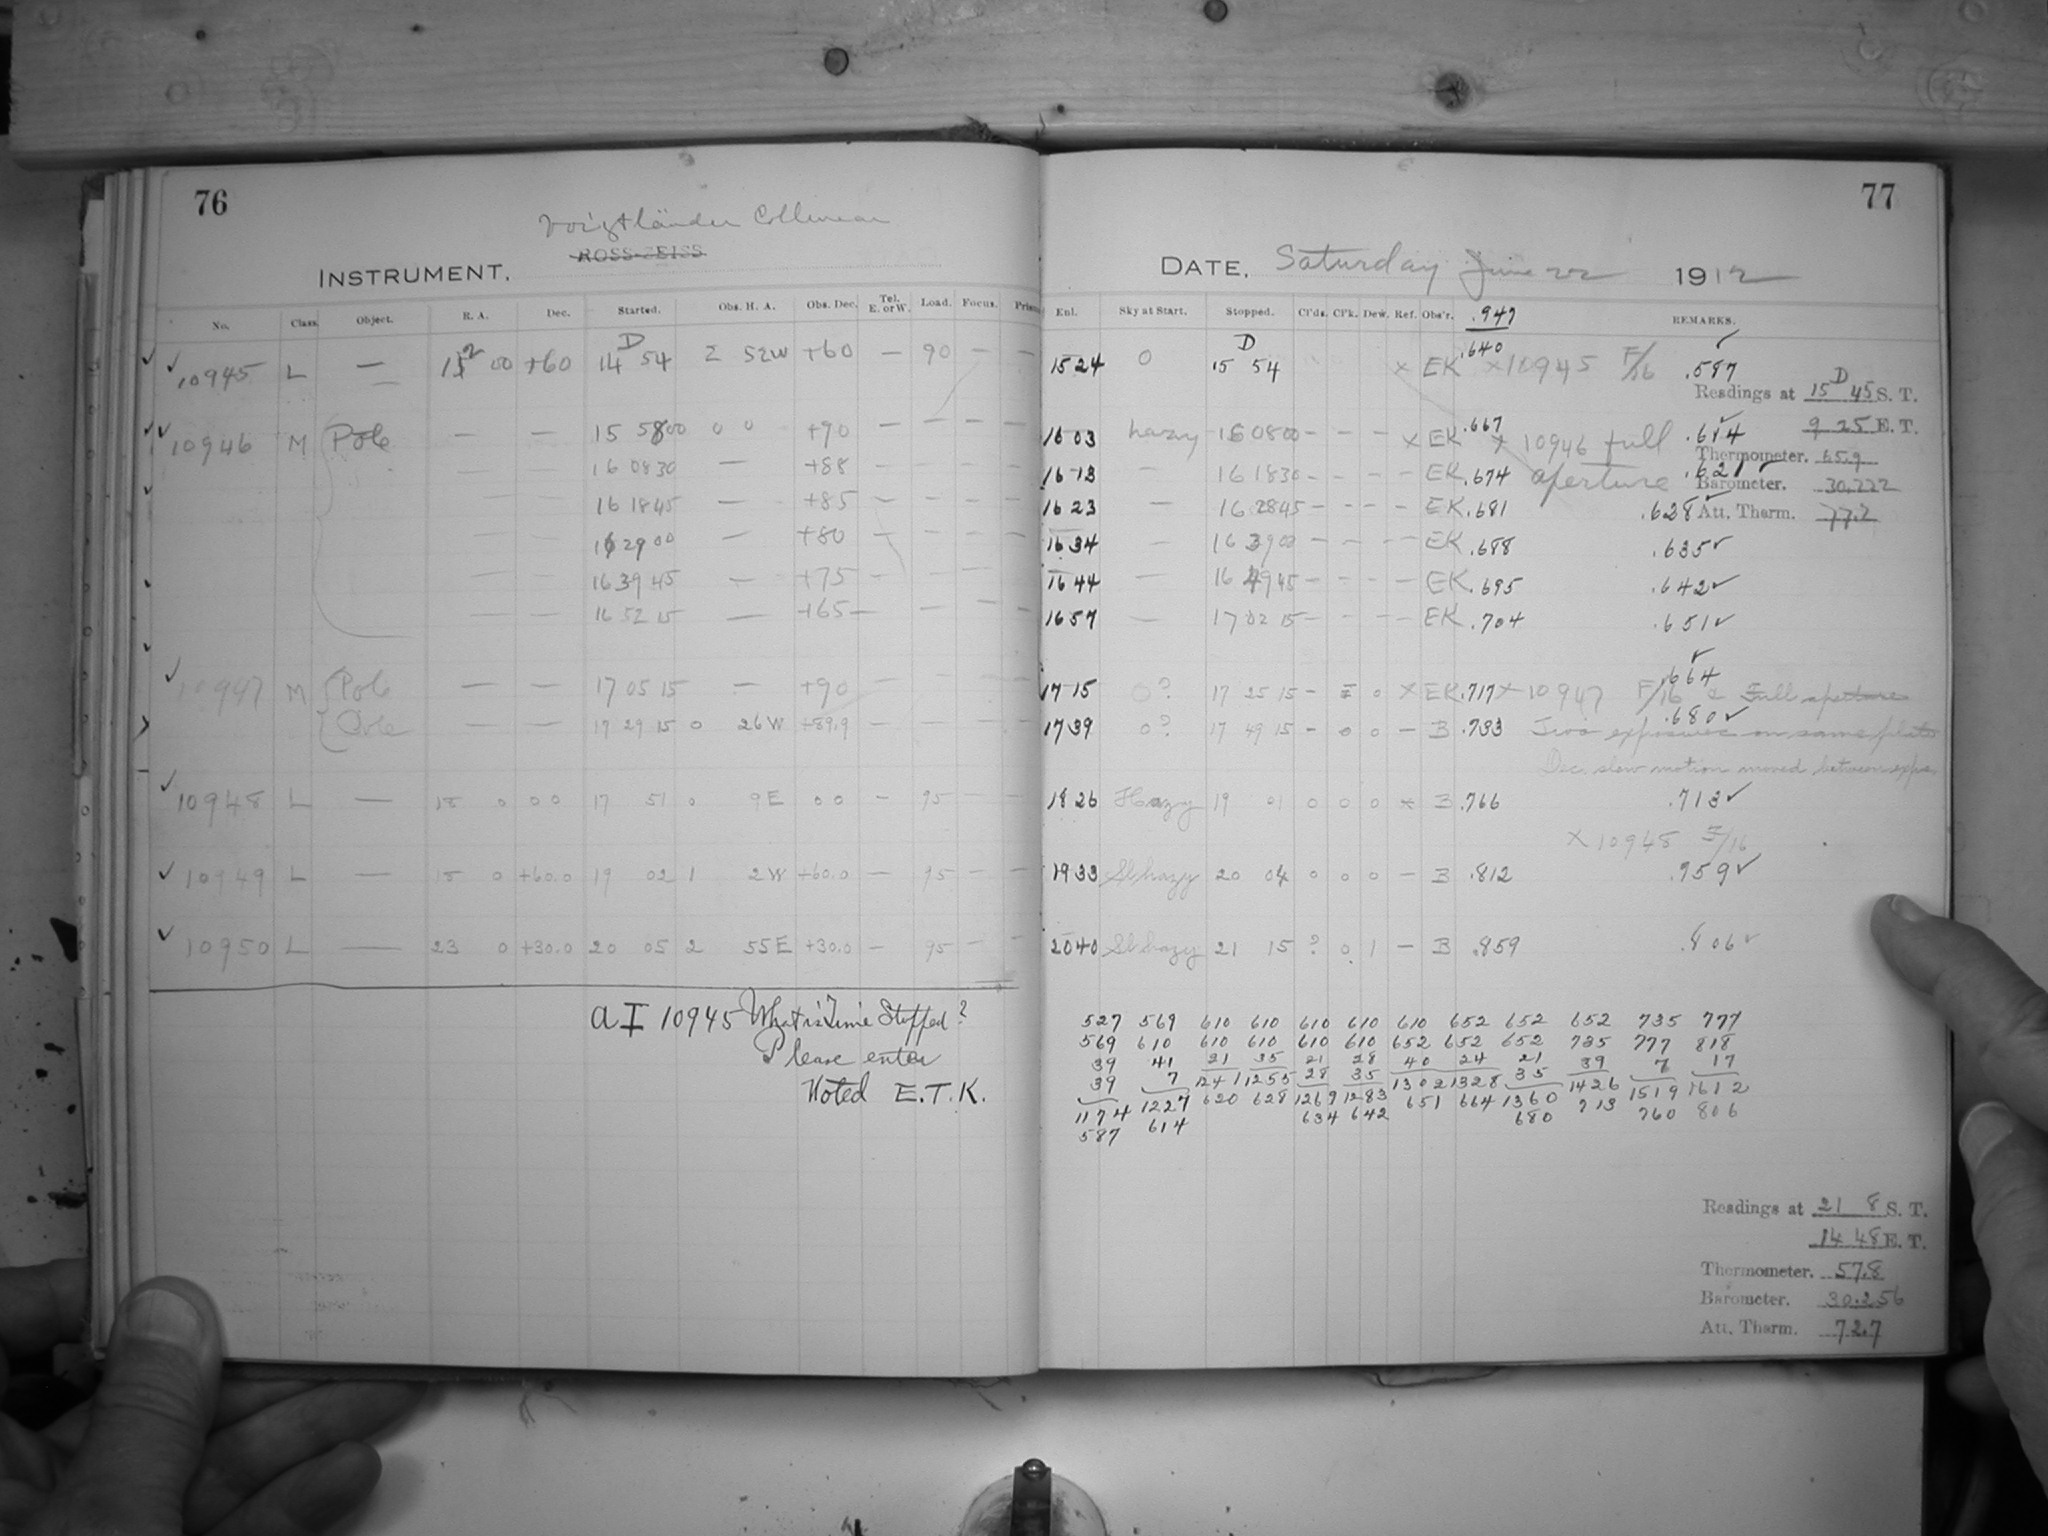 76
Voigtländer Collinear
ROSS-ZEISS
INSTRUMENT.
No. Class. Object. R. A. Dec. Started. Obs. H. A. Obs. Dec. Tel. E. or W. Load. Focus.
10945 L — 00 +60 14 D 54 2 52W +60 — 90 — —
10946 M Pole — — 15 5800 0 0 +90 — — — —
— — 16 0830 — +88 — — — —
— — 16 1845 — +85 — — — —
— — 16 2900 — +80 — — — —
— — 16 39 45 — +75 — — — —
— — 16 52 15 — +65 — — — —
10947 M Pole — — 17 05 15 — +90 — — — —
Pole — — 17 29 15 0 26W +89.9 — — — —
10948 L — 18 0 00 17 51 0 9E 00 — 95 — —
10949 L — 18 0 +60.0 19 02 1 2W +60.0 — 95 — —
10950 L — 23 0 +30.0 20 05 2 55E +30.0 — 95 — —
a I 10945 What is Time Stopped?
Please enter
Noted E.T.K.
77
DATE, Saturday June 22 1912
Exl. Sky at Start. Stopped. Cl'ds. Cl'k. Dew. Ref. Obs'r. .947 REMARKS.
1524 0 15 D 54 × EK .640 ×10945 F/16 .587 ✓
Readings at 15 D 45 S. T.
9 25 E. T.
1603 hazy 16 0800 — — — × EK .667 × 10946 full .614 ✓
Thermometer. 65.9
1613 — 16 1830 — — — — EK .674 aperture .621 ✓
Barometer. 30.222
1623 — 16 2845 — — — — EK .681 .628 ✓
Att. Tharm. 77.2
1634 — 16 3900 — — — — EK .688 .635 ✓
1644 — 16 4945 — — — — EK .695 .642 ✓
1657 — 17 02 15 — — — — EK .704 .651 ✓
.664 ✓
1715 0? 17 25 15 — 0 × EK .717 × 10947 F/16 & Full aperture
1739 0? 17 49 15 — 0 0 — B .733 .680 ✓ Two exposures on same plate
Dec. slow motion moved between exps.
1826 Hazy 19 01 0 0 0 × B .766 .713 ✓
× 10948 F/16
1933 Sl hazy 20 04 0 0 0 — B .812 .759 ✓
2040 Sl hazy 21 15 ? 0 1 — B .859 .806 ✓
527 569 610 610 610 610 610 652 652 652 735 777
569 610 610 610 610 610 652 652 652 735 777 818
39 41 21 35 21 28 40 24 21 39 7 17
39 7 1241 1255 28 35 1302 1328 35 1426 1519 1612
1174 1227 620 628 1269 1283 651 664 1360 713 760 806
587 614 634 642 680
Readings at 21 8 S. T.
14 48 E. T.
Thermometer. 57.8
Barometer. 30.256
Att. Tharm. 72.7